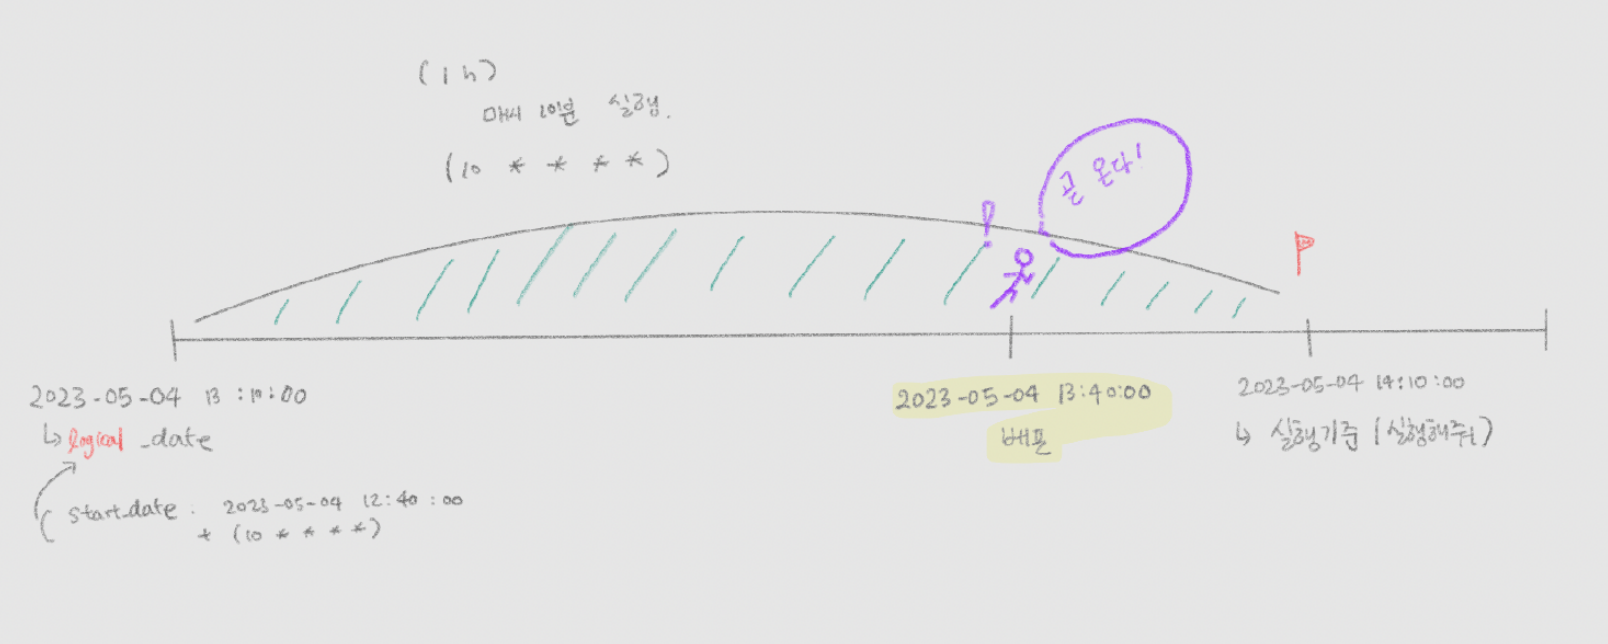 (1h)
매시 10분 실행.
(10 * * * *)
곧 온다!
!
2023-05-04 13:10:00
↳ logical_date
start_date : 2023-05-04 12:40:00
+ (10 * * * *)
2023-05-04 13:40:00
배포
2023-05-04 14:10:00
↳ 실행기준 (실행해줘)